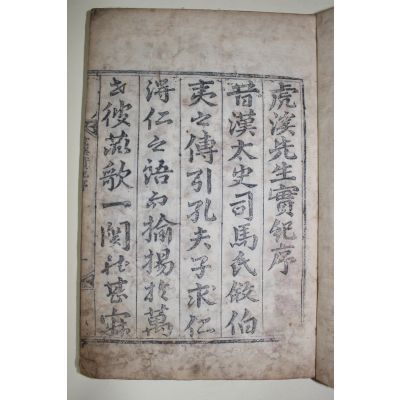 虎溪先生實紀序
昔漢太史司馬氏敘伯
夷之傳引孔夫子求仁
得仁之語而揄揚於萬
古彼蕨歌一闋非甚寂